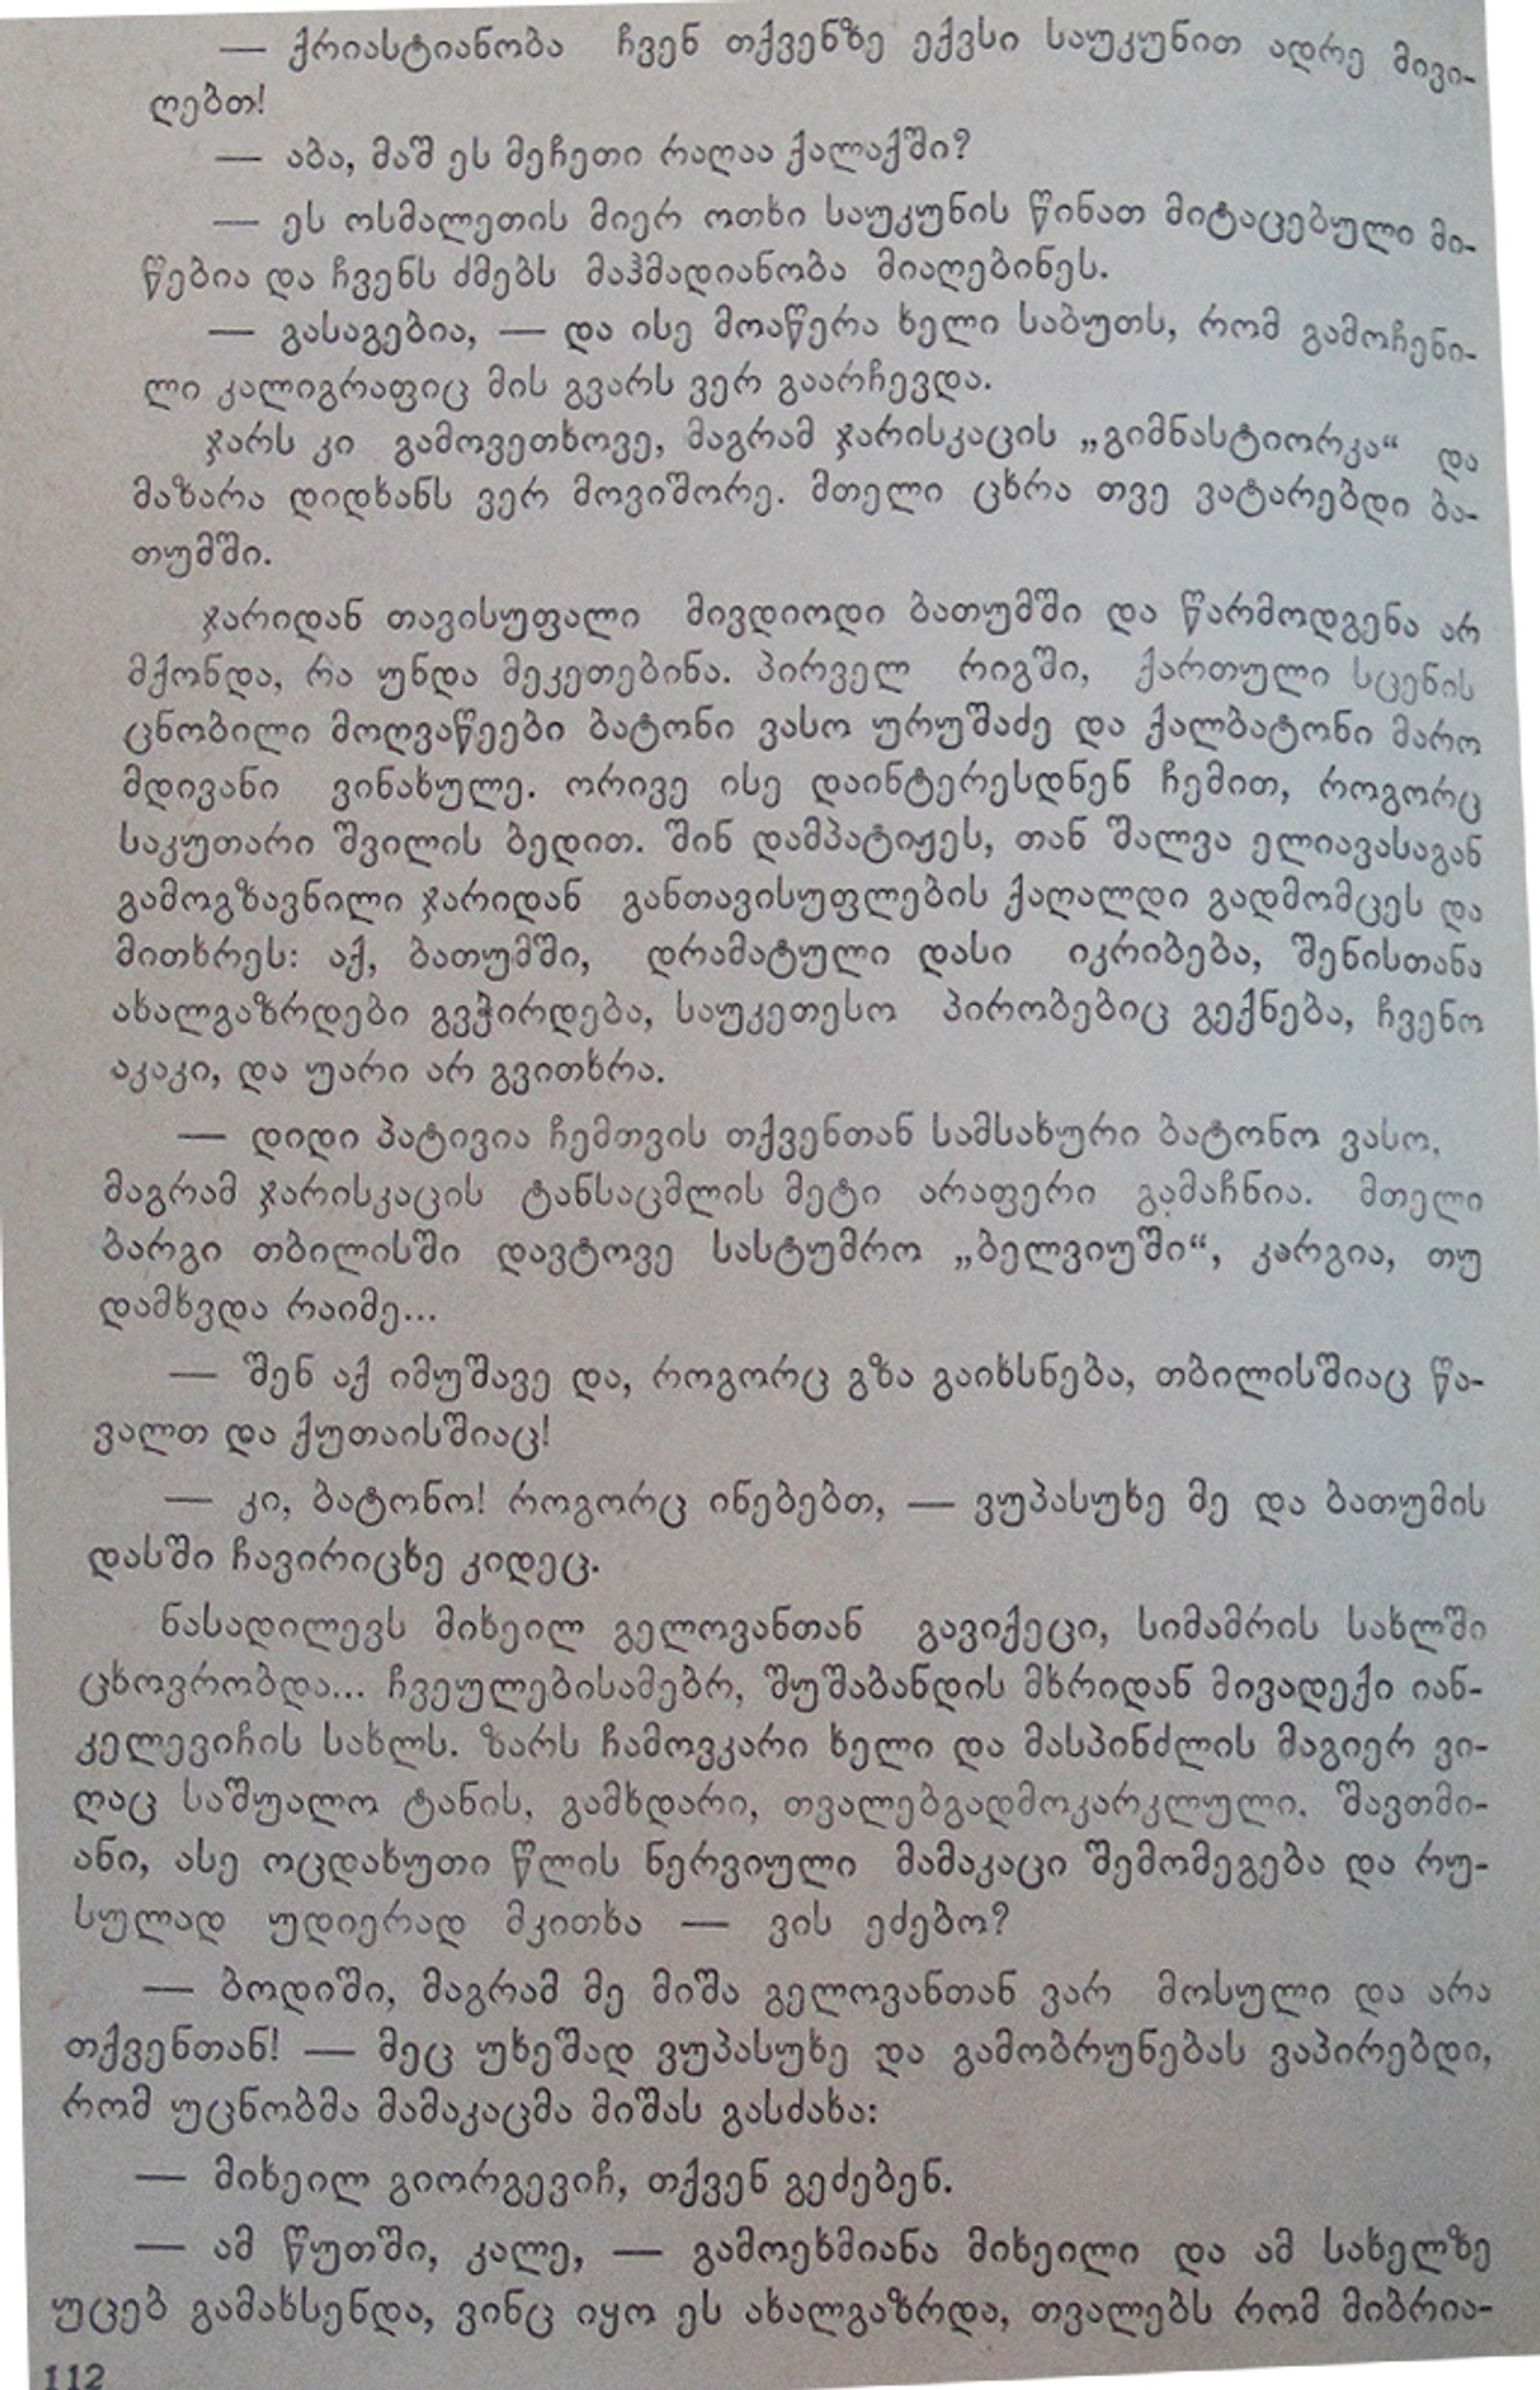 — ქრიასტიანობა ჩვენ თქვენზე ექვსი საუკუნით ადრე მივი-
ღებთ!
— აბა, მაშ ეს მეჩეთი რაღაა ქალაქში?
— ეს ოსმალეთის მიერ ოთხი საუკუნის წინათ მიტაცებული მი-
წებია და ჩვენს ძმებს მაჰმადიანობა მიაღებინეს.
— გასაგებია, — და ისე მოაწერა ხელი საბუთს, რომ გამოჩენი-
ლი კალიგრაფიც მის გვარს ვერ გაარჩევდა.
ჯარს კი გამოვეთხოვე, მაგრამ ჯარისკაცის „გიმნასტიორკა“ და
მაზარა დიდხანს ვერ მოვიშორე. მთელი ცხრა თვე ვატარებდი ბა-
თუმში.
ჯარიდან თავისუფალი მივდიოდი ბათუმში და წარმოდგენა არ
მქონდა, რა უნდა მეკეთებინა. პირველ რიგში, ქართული სცენის
ცნობილი მოღვაწეები ბატონი ვასო ურუშაძე და ქალბატონი მარო
მდივანი ვინახულე. ორივე ისე დაინტერესდნენ ჩემით, როგორც
საკუთარი შვილის ბედით. შინ დამპატიჟეს, თან შალვა ელიავასაგან
გამოგზავნილი ჯარიდან განთავისუფლების ქაღალდი გადმომცეს და
მითხრეს: აქ, ბათუმში, დრამატული დასი იკრიბება, შენისთანა
ახალგაზრდები გვჭირდება, საუკეთესო პირობებიც გექნება, ჩვენო
აკაკი, და უარი არ გვითხრა.
— დიდი პატივია ჩემთვის თქვენთან სამსახური ბატონო ვასო,
მაგრამ ჯარისკაცის ტანსაცმლის მეტი არაფერი გამაჩნია. მთელი
ბარგი თბილისში დავტოვე სასტუმრო „ბელვიუში“, კარგია, თუ
დამხვდა რაიმე...
— შენ აქ იმუშავე და, როგორც გზა გაიხსნება, თბილისშიაც წა-
ვალთ და ქუთაისშიაც!
— კი, ბატონო! როგორც ინებებთ, — ვუპასუხე მე და ბათუმის
დასში ჩავირიცხე კიდეც.
ნასადილევს მიხეილ გელოვანთან გავიქეცი, სიმამრის სახლში
ცხოვრობდა... ჩვეულებისამებრ, შუშაბანდის მხრიდან მივადექი იან-
კელევიჩის სახლს. ზარს ჩამოვკარი ხელი და მასპინძლის მაგიერ ვი-
ღაც საშუალო ტანის, გამხდარი, თვალებგადმოკარკლული, შავთმი-
ანი, ასე ოცდახუთი წლის ნერვიული მამაკაცი შემომეგება და რუ-
სულად უდიერად მკითხა — ვის ეძებო?
— ბოდიში, მაგრამ მე მიშა გელოვანთან ვარ მოსული და არა
თქვენთან! — მეც უხეშად ვუპასუხე და გამობრუნებას ვაპირებდი,
რომ უცნობმა მამაკაცმა მიშას გასძახა:
— მიხეილ გიორგევიჩ, თქვენ გეძებენ.
— ამ წუთში, კალე, — გამოეხმიანა მიხეილი და ამ სახელზე
უცებ გამახსენდა, ვინც იყო ეს ახალგაზრდა, თვალებს რომ მიბრია-
112